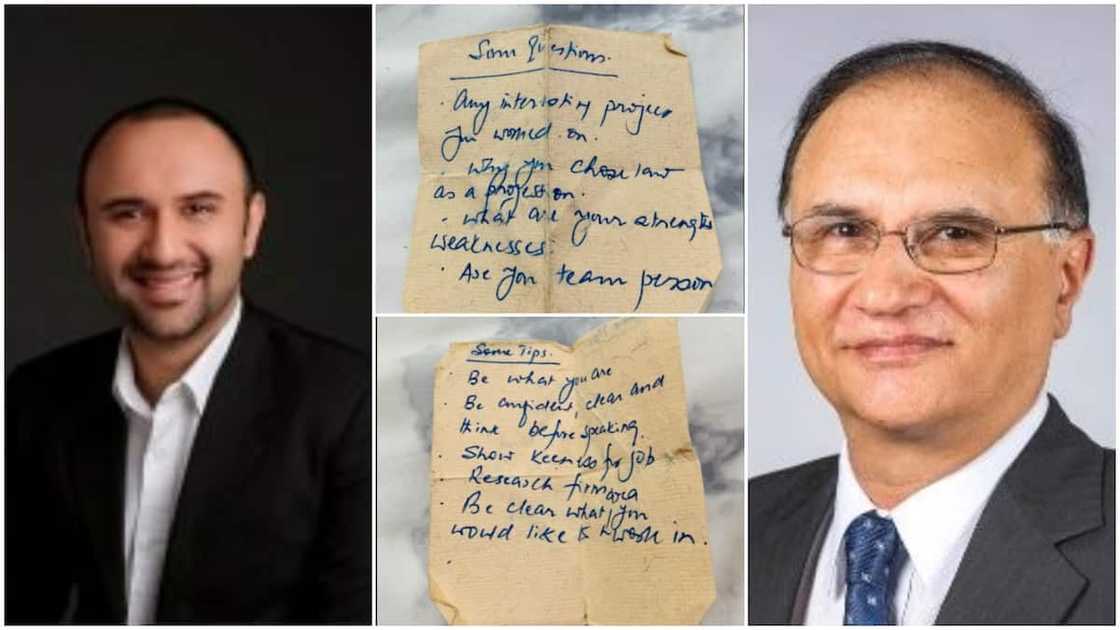 Some Questions.
· Any interesting project
you worked on.
· Why you chose law
as a profession.
· what are your strengths
weaknesses.
· Are you team person
Some Tips.
· Be what you are
· Be confident, clear and
think before speaking.
· Show keenness for job
· Research firm area
· Be clear what you
would like to work in.